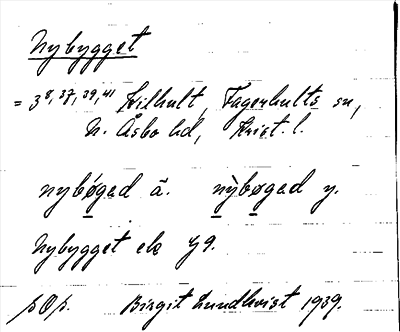 Nybygget
= 3 8, 37, 39, 41 Hilhult, Fagerhults sn,
N. Åsbo hd, Krist. l.
nybǿgad ä. nỳbøgad y.
Nybygget ek 49.
p Op. Birgit Lundkvist 1939.